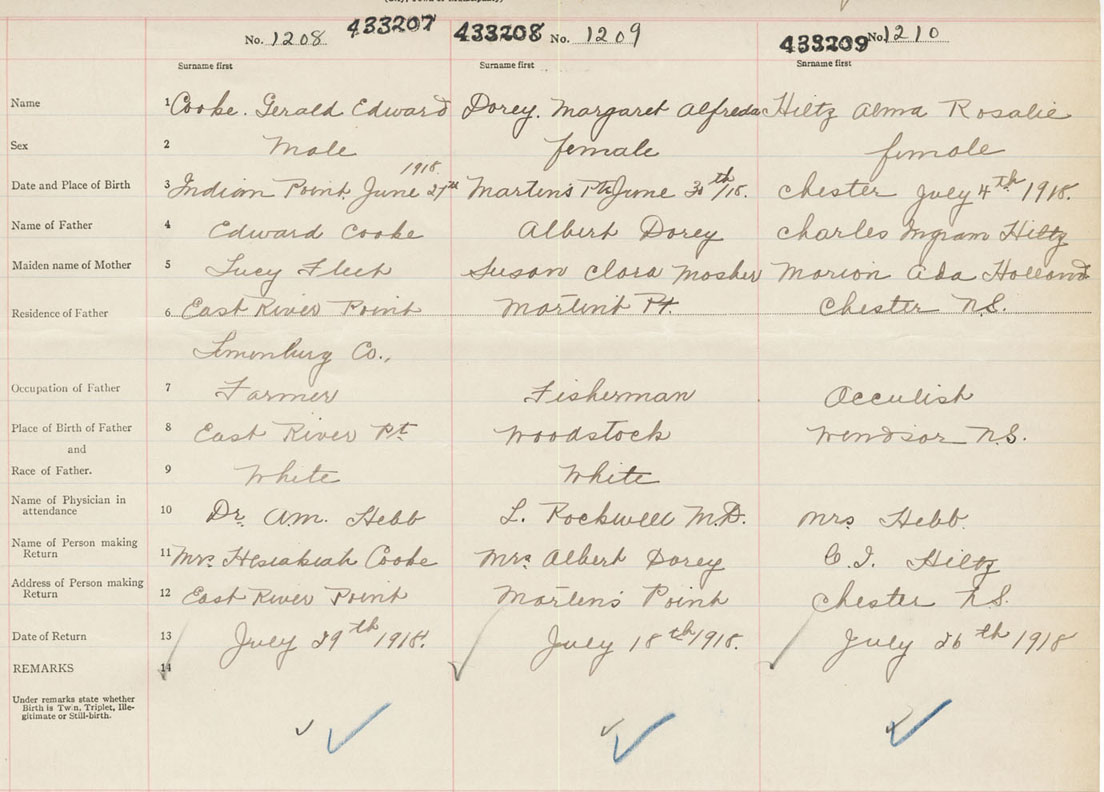 433207 433208 433209
No. 1208 No. 1209 No. 1210
Surname first Surname first Surname first
Name 1 Cooke. Gerald Edward Dorey. Margaret Alfreda Hiltz Alma Rosalie
Sex 2 Male female female
1918
Date and Place of Birth 3 Indian Point June 27th Martin's Pt. June 30th/18. Chester July 4th 1918.
Name of Father 4 Edward Cooke Albert Dorey Charles Ingram Hiltz
Maiden name of Mother 5 Lucy Fleet Susan Clara Mosher Marion Ada Holland
Residence of Father 6 East River Point Martin's Pt. Chester N.S.
Lunenburg Co.,
Occupation of Father 7 Farmer Fisherman Occulist
Place of Birth of Father 8 East River Pt. Woodstock Windsor N.S.
and
Race of Father. 9 White White
Name of Physician in
attendance 10 Dr. A.M. Hebb L. Rockwell M.D. Mrs Hebb.
Name of Person making
Return 11 Mrs. Cooke Mrs. Albert Dorey C.I. Hiltz
Address of Person making
Return 12 East River Point Martin's Point Chester N.S.
Date of Return 13 July 29th 1918. July 18th 1918. July 26th 1918
REMARKS 14
Under remarks state whether
Birth is Twin, Triplet, Ille-
gitimate or Still-birth.